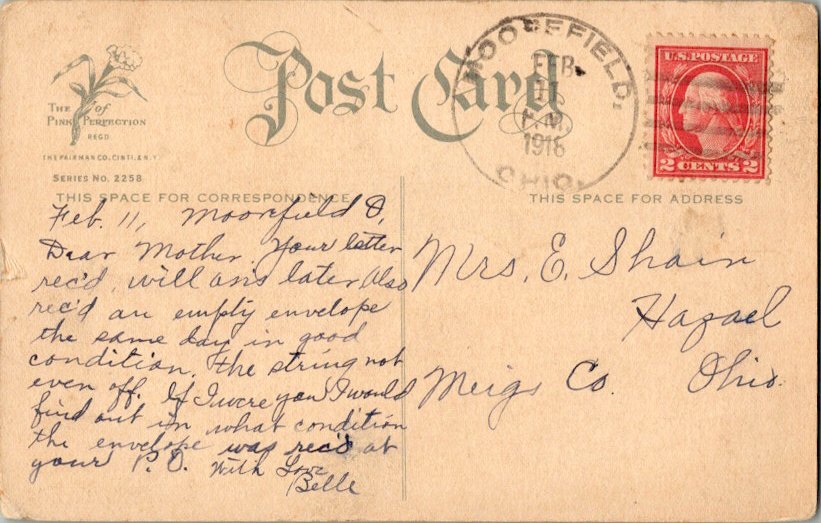 Post Card
MOOREFIELD,
FEB
11
A.M.
1918
OHIO.
U.S. POSTAGE
2 CENTS 2
The of
Pink Perfection
REGD
THE FAIRMAN CO., CINTI. & N.Y.
SERIES NO. 2258
THIS SPACE FOR CORRESPONDENCE
THIS SPACE FOR ADDRESS
Feb. 11, Moorefield O,
Dear Mother. Your letter
rec'd, will ans later. Also
rec'd an empty envelope
the same day in good
condition. The string not
even off. If I were you I would
find out in what condition
the envelope was rec'd at
your P.O. With Love
Belle
Mrs. E. Shain
Hazael
Meigs Co. Ohio.